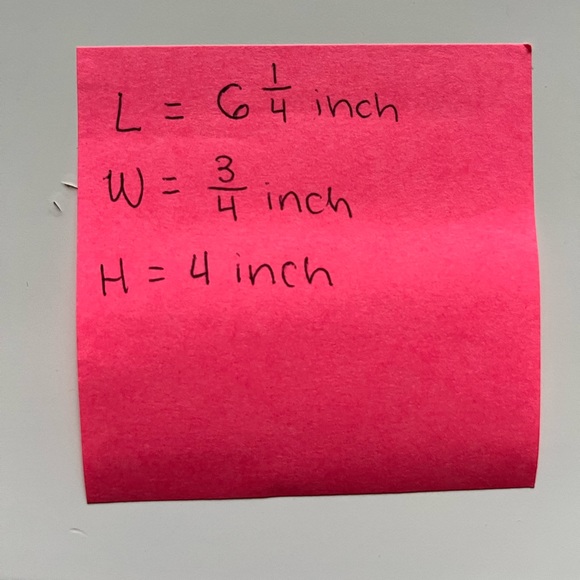 L = 6 1/4 inch
W = 3/4 inch
H = 4 inch